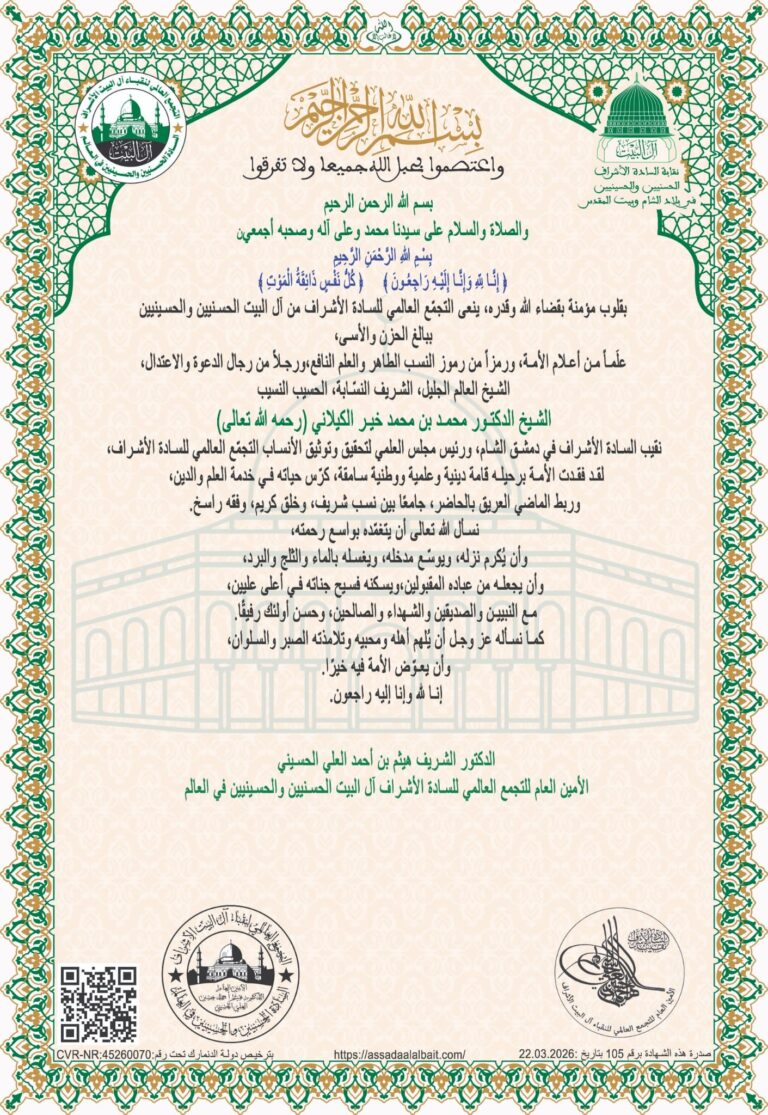 التجمع العالمي لنقباء آل البيت الأشراف
آل البيت
السادة الحسنيين والحسينيين في العالم
بسم الله الرحمن الرحيم
واعتصموا بحبل الله جميعا ولا تفرقوا
آل البيت
نقابة السادة الأشراف
الحسنيين والحسينيين
في بلاد الشام وبيت المقدس
بسم الله الرحمن الرحيم
والصلاة والسلام على سيدنا محمد وعلى آله وصحبه أجمعين
بِسْمِ اللهِ الرَّحْمَنِ الرَّحِيمِ
﴿ إِنَّا لِلَّهِ وَإِنَّا إِلَيْهِ رَاجِعُونَ ﴾ ﴿ كُلُّ نَفْسٍ ذَائِقَةُ الْمَوْتِ ﴾
بقلوب مؤمنة بقضاء الله وقدره، ينعى التجمّع العالمي للسادة الأشراف من آل البيت الحسنيين والحسينيين
ببالغ الحزن والأسى،
علّمـاً مـن أعـلام الأمـة، ورمزاً من رموز النسب الطاهر والعلم النافع،ورجـلاً من رجال الدعوة والاعتدال،
الشيخ العالم الجليل، الشريف النسّابة، الحسيب النسيب
الشيخ الدكتـور محمـد بن محمد خيـر الكيلاني (رحمه الله تعالى)
نقيب السادة الأشراف في دمشق الشام، ورئيس مجلس العلمي لتحقيق وتوثيق الأنساب التجمّع العالمي للسادة الأشراف،
لقـد فقـدت الأمـة برحيلـه قامة دينية وعلمية ووطنية سامقة، كرّس حياته فـي خدمة العلم والدين،
وربط الماضي العريق بالحاضر، جامعًا بين نسب شريف، وخلق كريم، وفقه راسـخ.
نسـأل الله تعالى أن يتغمّده بواسـع رحمته،
وأن يُكرم نزله، ويوسّـع مدخله، ويغسله بالماء والثلج والبرد،
وأن يجعلـه من عباده المقبولين،ويسكنه فسيح جناته فـي أعلى عليين،
مـع النبيين والصديقين والشهداء والصالحين، وحسن أولئك رفيقًا.
كمـا نسـأله عز وجل أن يُلهم أهله ومحبيه وتلامذته الصبر والسلوان،
وأن يعـوّض الأمة فيه خيرًا.
إنـا لله وإنا إليه راجعون.
الدكتور الشريف هيثم بن أحمد العلي الحسيني
الأمين العام للتجمع العالمي للسادة الأشراف آل البيت الحسنيين والحسينيين في العالم
التجمع العالمي لنقباء آل البيت الأشراف
الأمين العام
السادة الحسنيين والحسينيين في العالم
الأمين العام للتجمع العالمي لنقباء آل البيت الأشراف
صدرة هذه الشهادة برقم 105 بتاريخ :22.03.2026
https://assadaalalbait.com/
بترخيص دولـة الدنمارك تحت رقم:CVR-NR:45260070